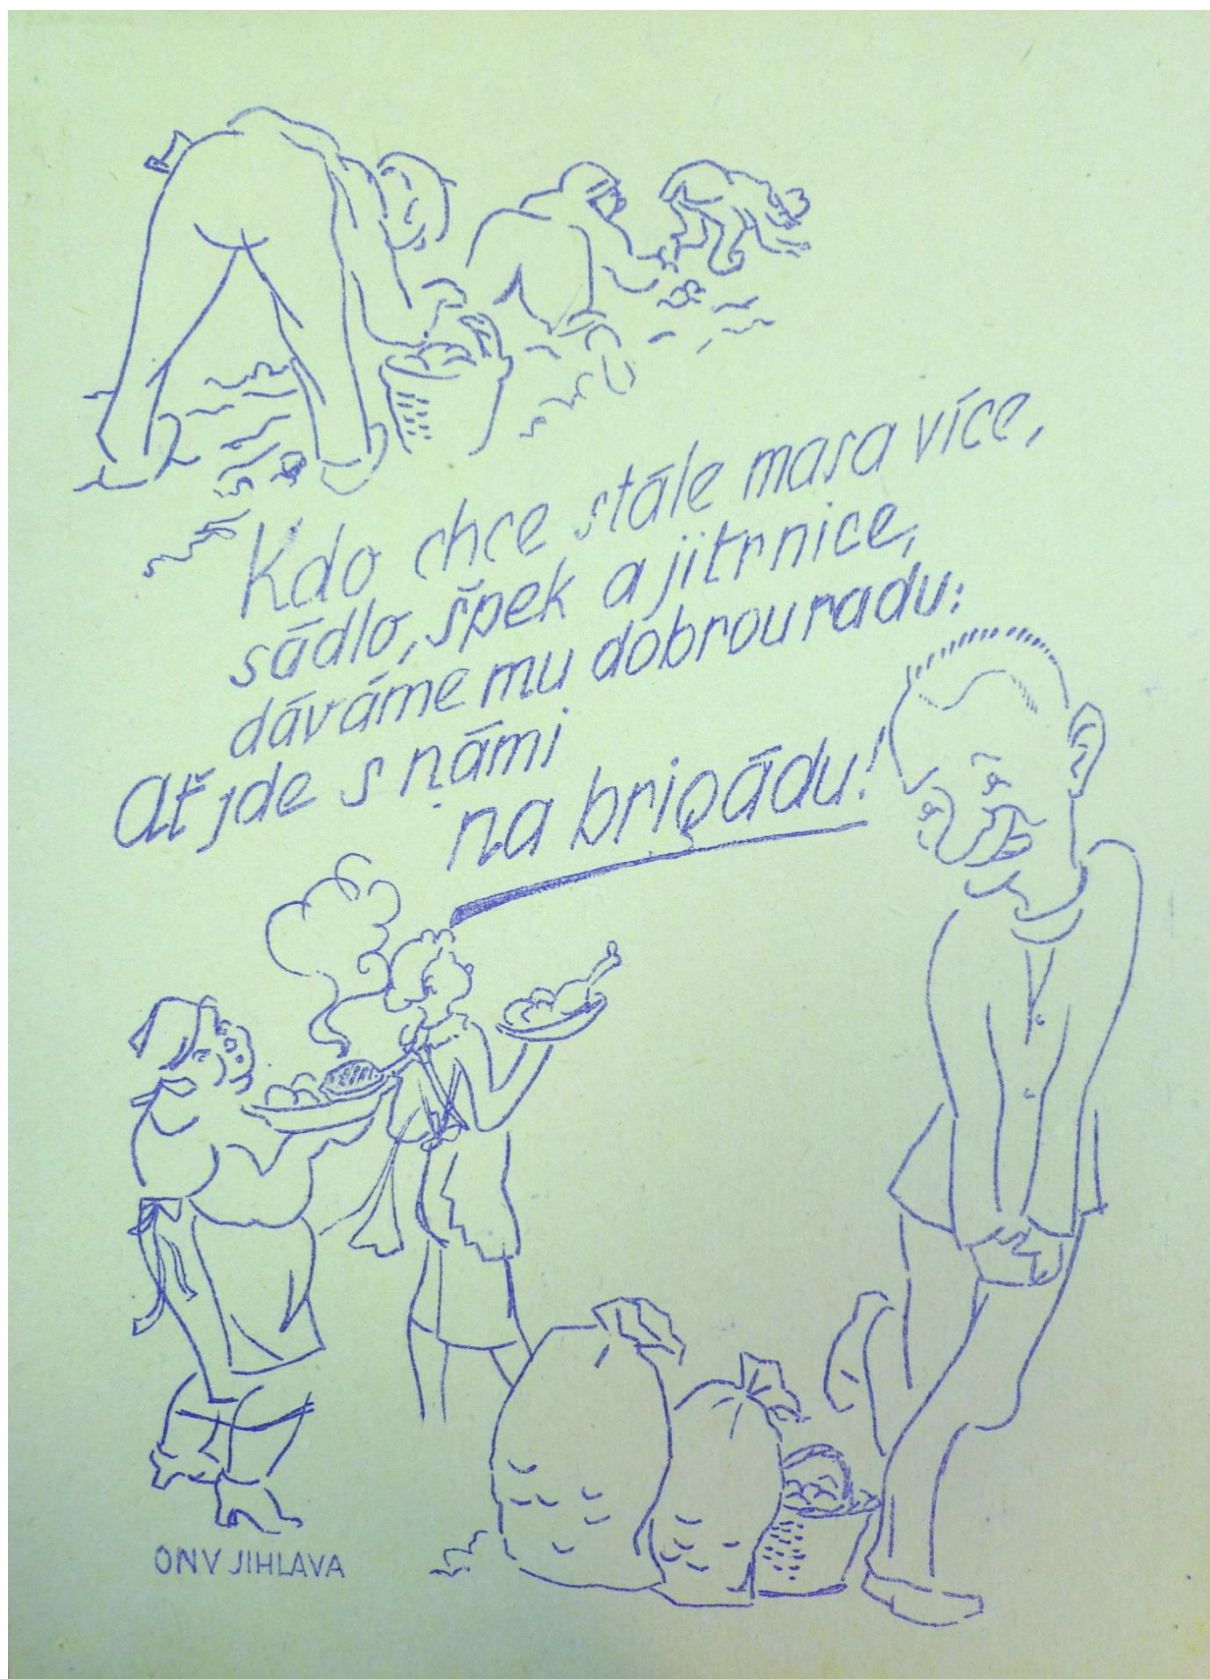 Kdo chce stále masa více,
sádlo, špek a jitrnice,
dáváme mu dobrou radu:
Ať jde s námi
na brigádu!
ONV JIHLAVA